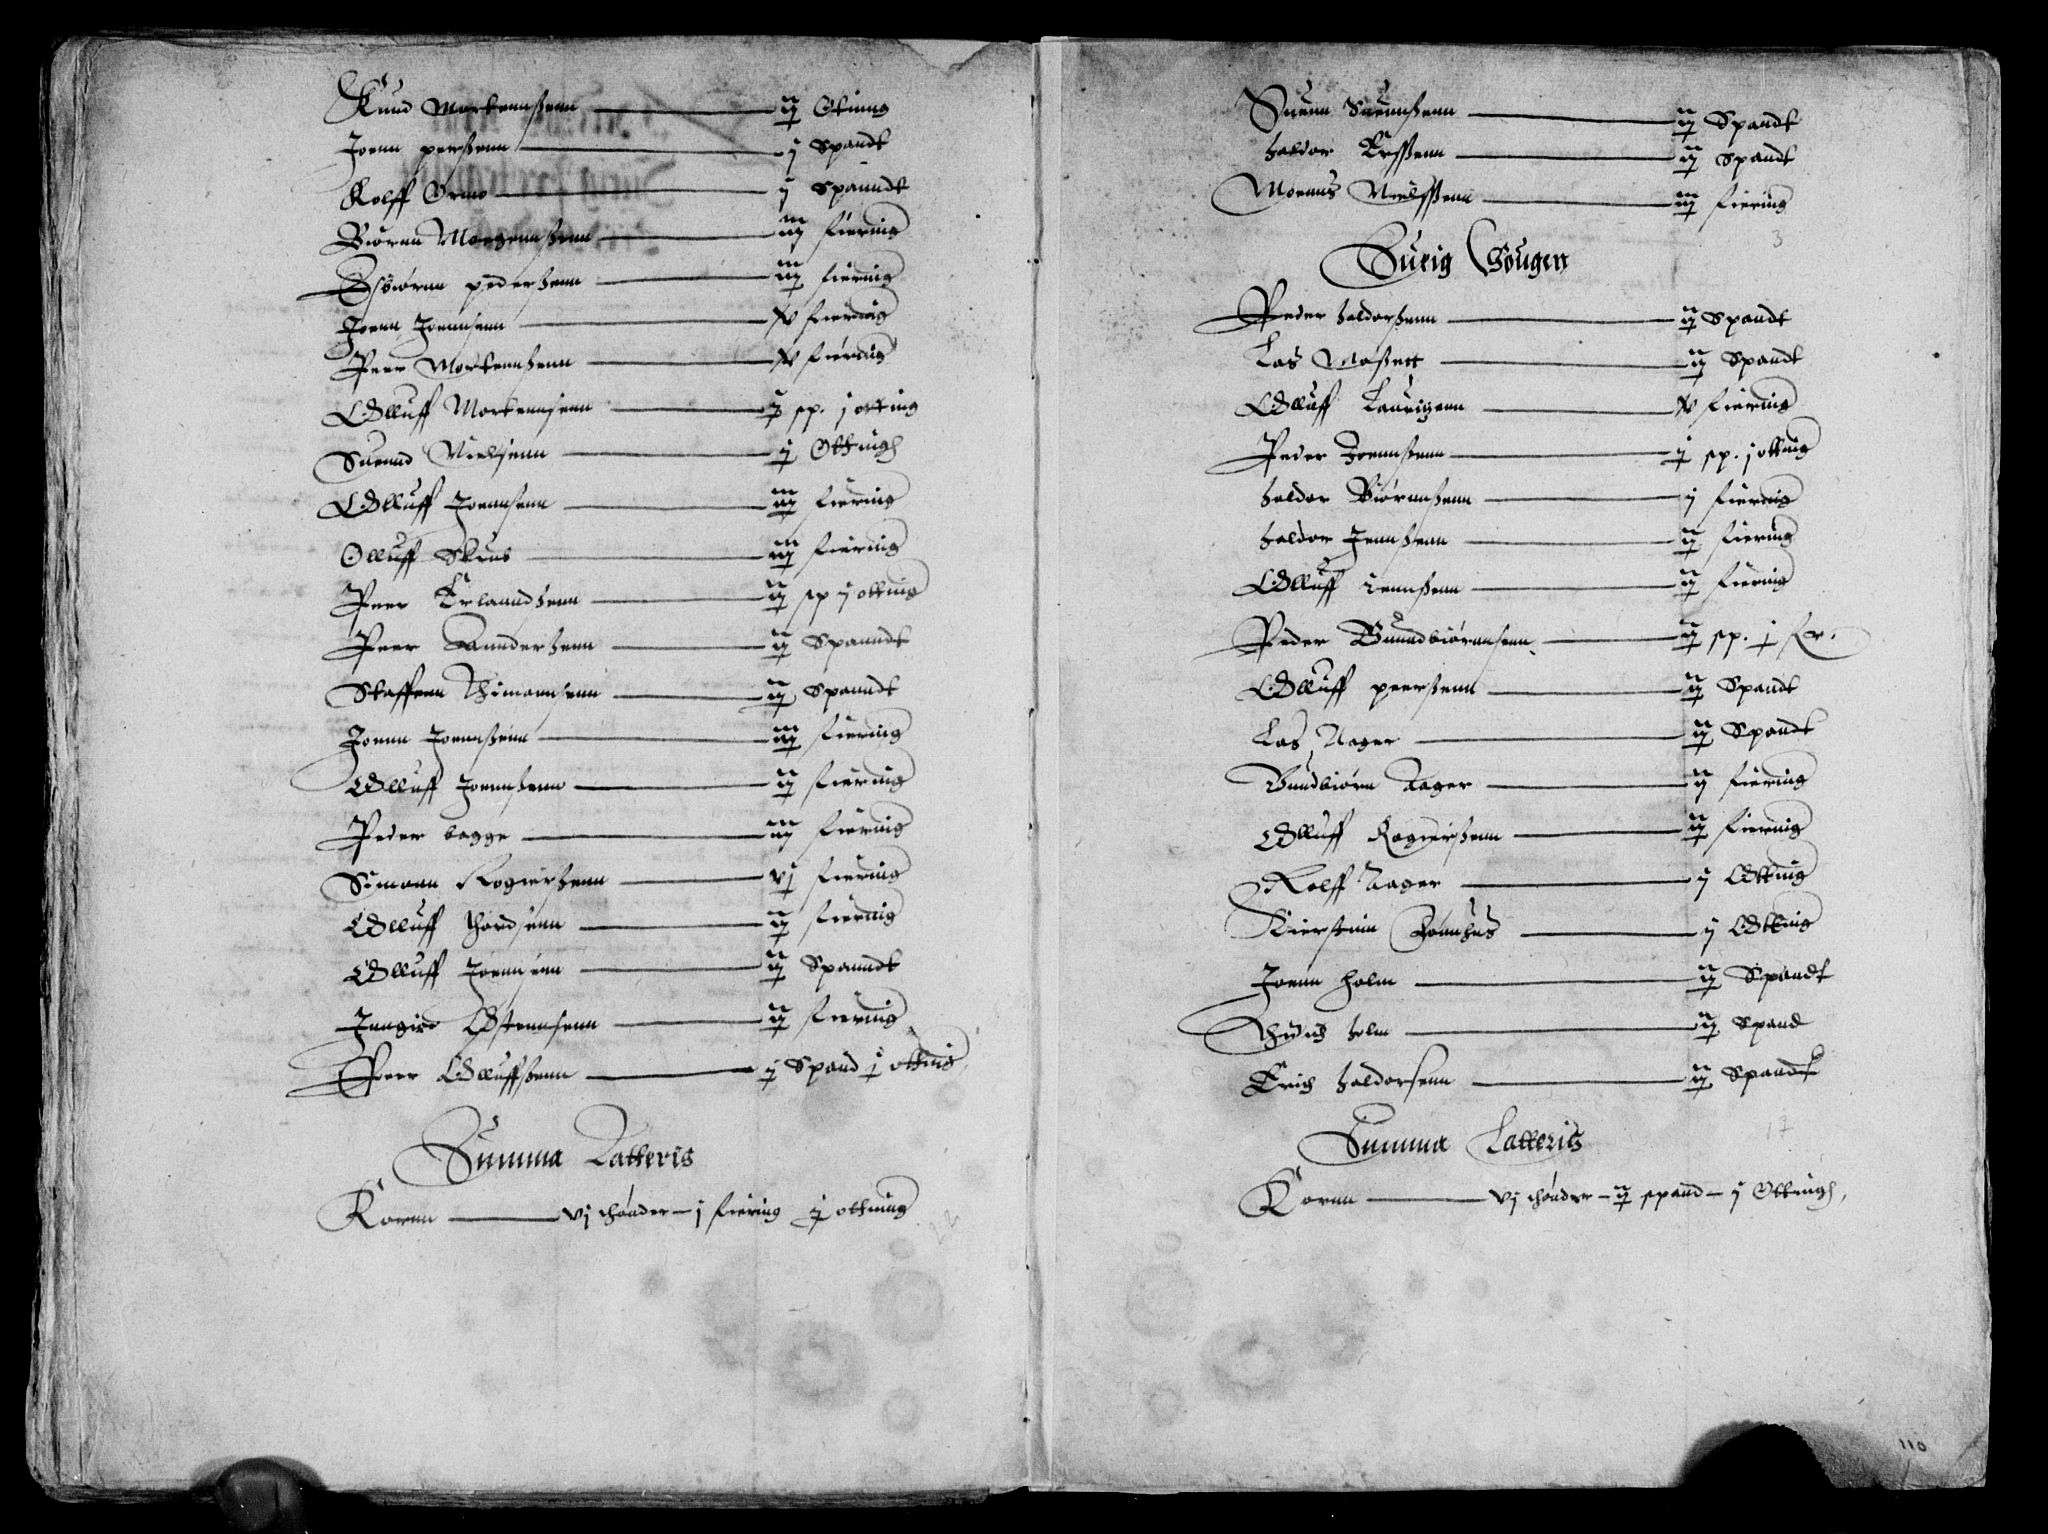 Knud Mortennßenn — iij Otinng
Joenn perßenn — j Spandt
Rolff Ormo — ij Spanndt
Biørnn Mogennßenn — iiij fiering
Asbiørnn pederßenn — iiij fiering
Joenn Joennsenn — xv fiering
Peer Mortennßenn — xv fiering
Olluff Mortennsenn — ij sp. j otting
Suennd Nielsenn — ij Ottingh
Olluff Joennsenn — iiij fiering
Olluff — iiij fiering
Peer Erlanndßenn — iij sp ij otting
Peer Gunnderßenn — iij Spanndt
Staffenn Simonnsenn — iij Spanndt
Joenn Joennßenn — iiij fiering
Olluff Joennßenn — iij fiering
Peder bagge — iiij fiering
Simonn Rogierßenn — vj fiering
Olluff thordsenn — iij fiering
Olluff Joennsenn — iij Spanndt
Jnngird Østennsenn — iij fiering
Peer Olluffßenn — ij Spand j otting
Summa Latteris
Kornn — vj thønder — j fiering ij otning
22
Suenn Suennßenn — iij Spandt
haldor — iij Spandt
Moenns Nielsßenn — iiij fiering
3
Surig Sougen
Peder haldorßenn — iij Spandt
Las — iij Spandt
Olluff Laurizenn — xv fiering
Peder Joennßenn — ij sp. j otting
haldor Biørnnßenn — ij fiering
haldor Jennßenn — iij fiering
Olluff iennßenn — iij fiering
Peder Gunndbiørnnsenn — iij sp. j fr.
Olluff peerßenn — iij Spandt
Las Aager — iij Spandt
Gundbiørn Aager — ij fiering
Olluff Rogierßenn — iij fiering
Rolff Aager — ij Otting
Kierstinn — ij Otting
Joenn holm — iij Spandt
holm — iij Spand
Erich haldorsenn — iij Spandt
17
Summa Latteris
Kornn — vj thønder — iij spand — ij Ottingh
110